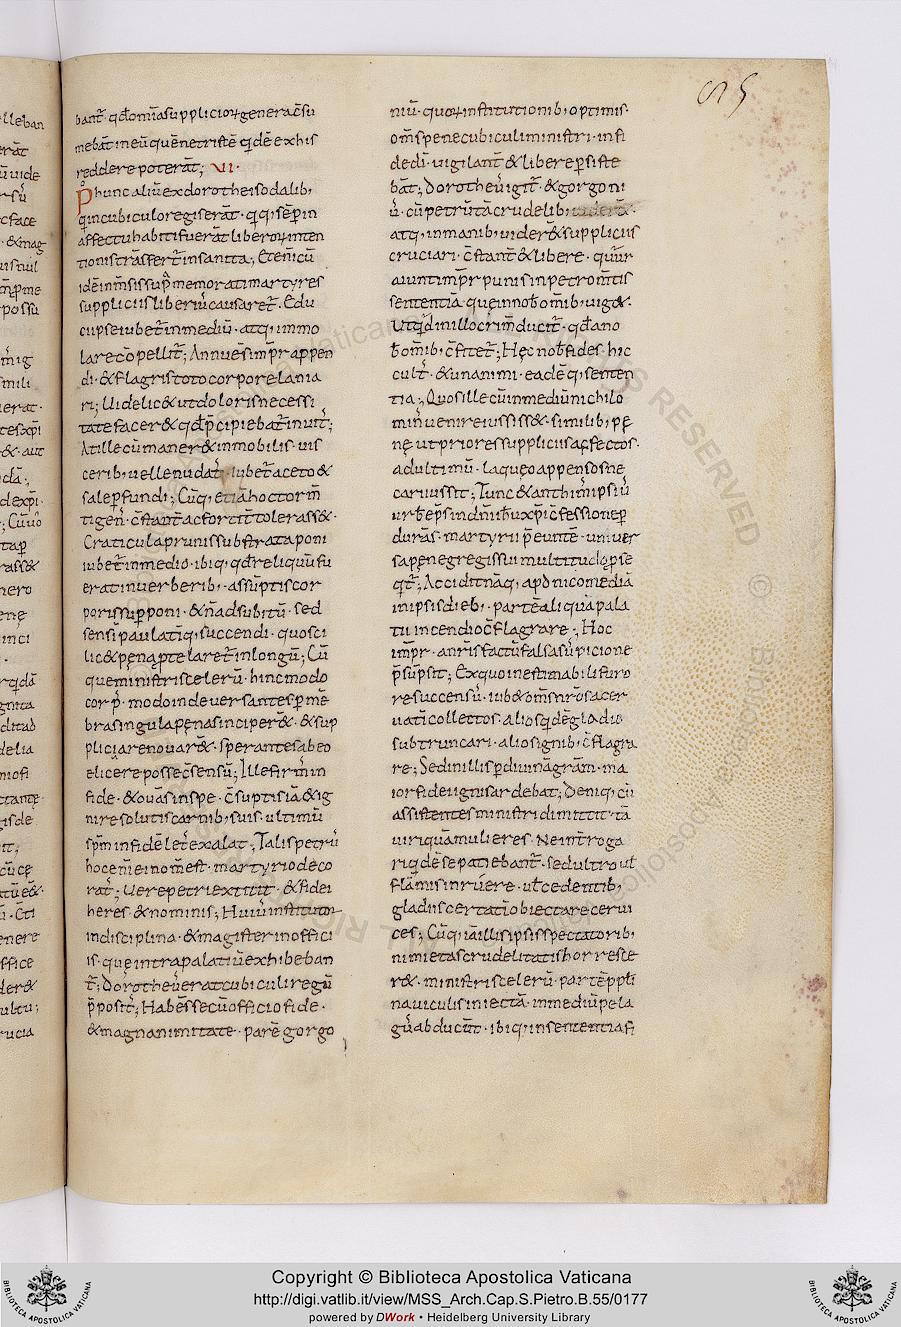 bant̄· qđ om̄ia suppliciorꝝ genera c̄su
mebāt in eū quē ne tristē qͥdē ex his
reddere poterāt; VI·
Pꝰ hunc aliū ex dorothei sodalibꝫ
qͥ in cubiculo regis erāt· qͥ qͥ sēꝑ in
affectu habiti fuerāt liberorꝝ inten
tionis trāsfert̄ insania; Eteni cū
idē inm̄sis supͣ memorati martyres
suppliciis liberiꝰ causaret̄· Edu
ci ipse iubet̄ in mediū· atqꝫ immo
lare cōpellit̄; Annuēs imꝑr appen
di· & flagris toto corpore lania
ri; Uidelic& ut doloris necessi
tate facer& qđ p̄cipiebat̄ inuitꝰ;
At ille cū maner& inmobilis· uis
ceribꝫ uelle nudatꝰ· iubet̄ aceto &
sale ꝑfundi; Cūqꝫ etiā hoc torm̄
ti genꝰ c̄stant̄ ac fortit̄ tolerass&·
Craticula prunis substrata poni
iubet̄ in medio· ibiqꝫ qđ reliquū fu
erat in uerberibꝫ· assūptis cor
poris supponi· & n̄ ad subitū· sed
sensī paulatīqꝫ succendi· quo sci
lic& pena ꝑte laret̄ in longū; Cū
que ministri scelerū· hinc modo
corpꝰ· modo inde uersantes ꝑ mē
bra singula penas inciper&· & sup
plicia renouar&· sperantes ab eo
elicere posse c̄sensū; Ille firmꝰ in
fide· & ouās in spe· c̄suptis iā & ig
ni resolutis carnibꝫ suis· ultimū
sp̄m in fidē let̄ exalat; Tali petrꝰ
hoc eni ei nom̄ est· martyrio deco
ratꝰ; Uere petri extitit· & fidei
heres· & nominis; Huiꝰ institutor
in disciplina· & magister in offici
is· que intra palatiū exhibeban
t̄; Dorotheꝰ erat cubiculi regū
p̄positꝰ; Habēs secū officio fide·
& magnanimitate· parē gorgo
niū· quorꝝ institutionibꝫ optimis·
om̄s pene cubiculi ministri· in fi
dei di· uigilant̄ & libere ꝑsiste
bāt; Dorotheꝰ igit̄· & gorgoni
ꝰ· cū petrū tā crudelibꝫ
atqꝫ inmanibꝫ uider& suppliciis
cruciari· c̄stant̄ & libere·
aiunt imꝑr punis in petro m̄tis
sententiā que in nob̄ om̄ibꝫ uig&·
Ut qͥd in illo crim̄ ducit̄· qđ a no
b̄ om̄ibꝫ c̄fitet̄; Hęc nob̄ fides· hic
cultꝰ· & unanimi· eadēqꝫ senten
tia; Quos ille cū in mediū nichilo
minꝰ uenire iussiss&· similibꝫ pę
nę ut priores suppliciis affectos·
ad ultimū· laqueo appensos ne
cari iussit; Tunc & anthimꝰ ipsiꝰ
urb̄ ep̄s in dn̄i ih̄u xp̄i c̄fessione ꝑ
durās· martyrii p̄eunte· uniuer
sa pene gregis sui multitudo ꝑse
qͥt̄; Accidit nāqꝫ apđ nicomediā
in ipsis diebꝫ· partē aliquā pala
tii incendio c̄flagrare; Hoc
imꝑr· a nr̄is factū falsa susͥpicione
p̄sūpsit; Ex quo inestimabili furo
re succensꝰ· iub& om̄s nr̄os acer
uatī collectos· alios qͥdē gladio
subtruncari· alios ignibꝫ c̄flagra
re; Sed in illis ꝑ diuinā gr̄am· ma
ior fidei ignis ardebat; Deniqꝫ cū
assistentes ministri dimittit· tā
uiri quā mulieres· Ne int̄roga
ri qͥdē se patiebant̄· sed ultro ul̄
flāmis inruere· ul̄ cedentibꝫ
gladiis certatī obiectare cerui
ces; Cūqꝫ iā illis ipsis spectatoribꝫ
nimietas crudelitatis horresce
r&· ministri scelerū· partē ppl̄i
nauiculis iniectā· in mediū pela
gꝰ abducūt· ibiqꝫ in sententia fi